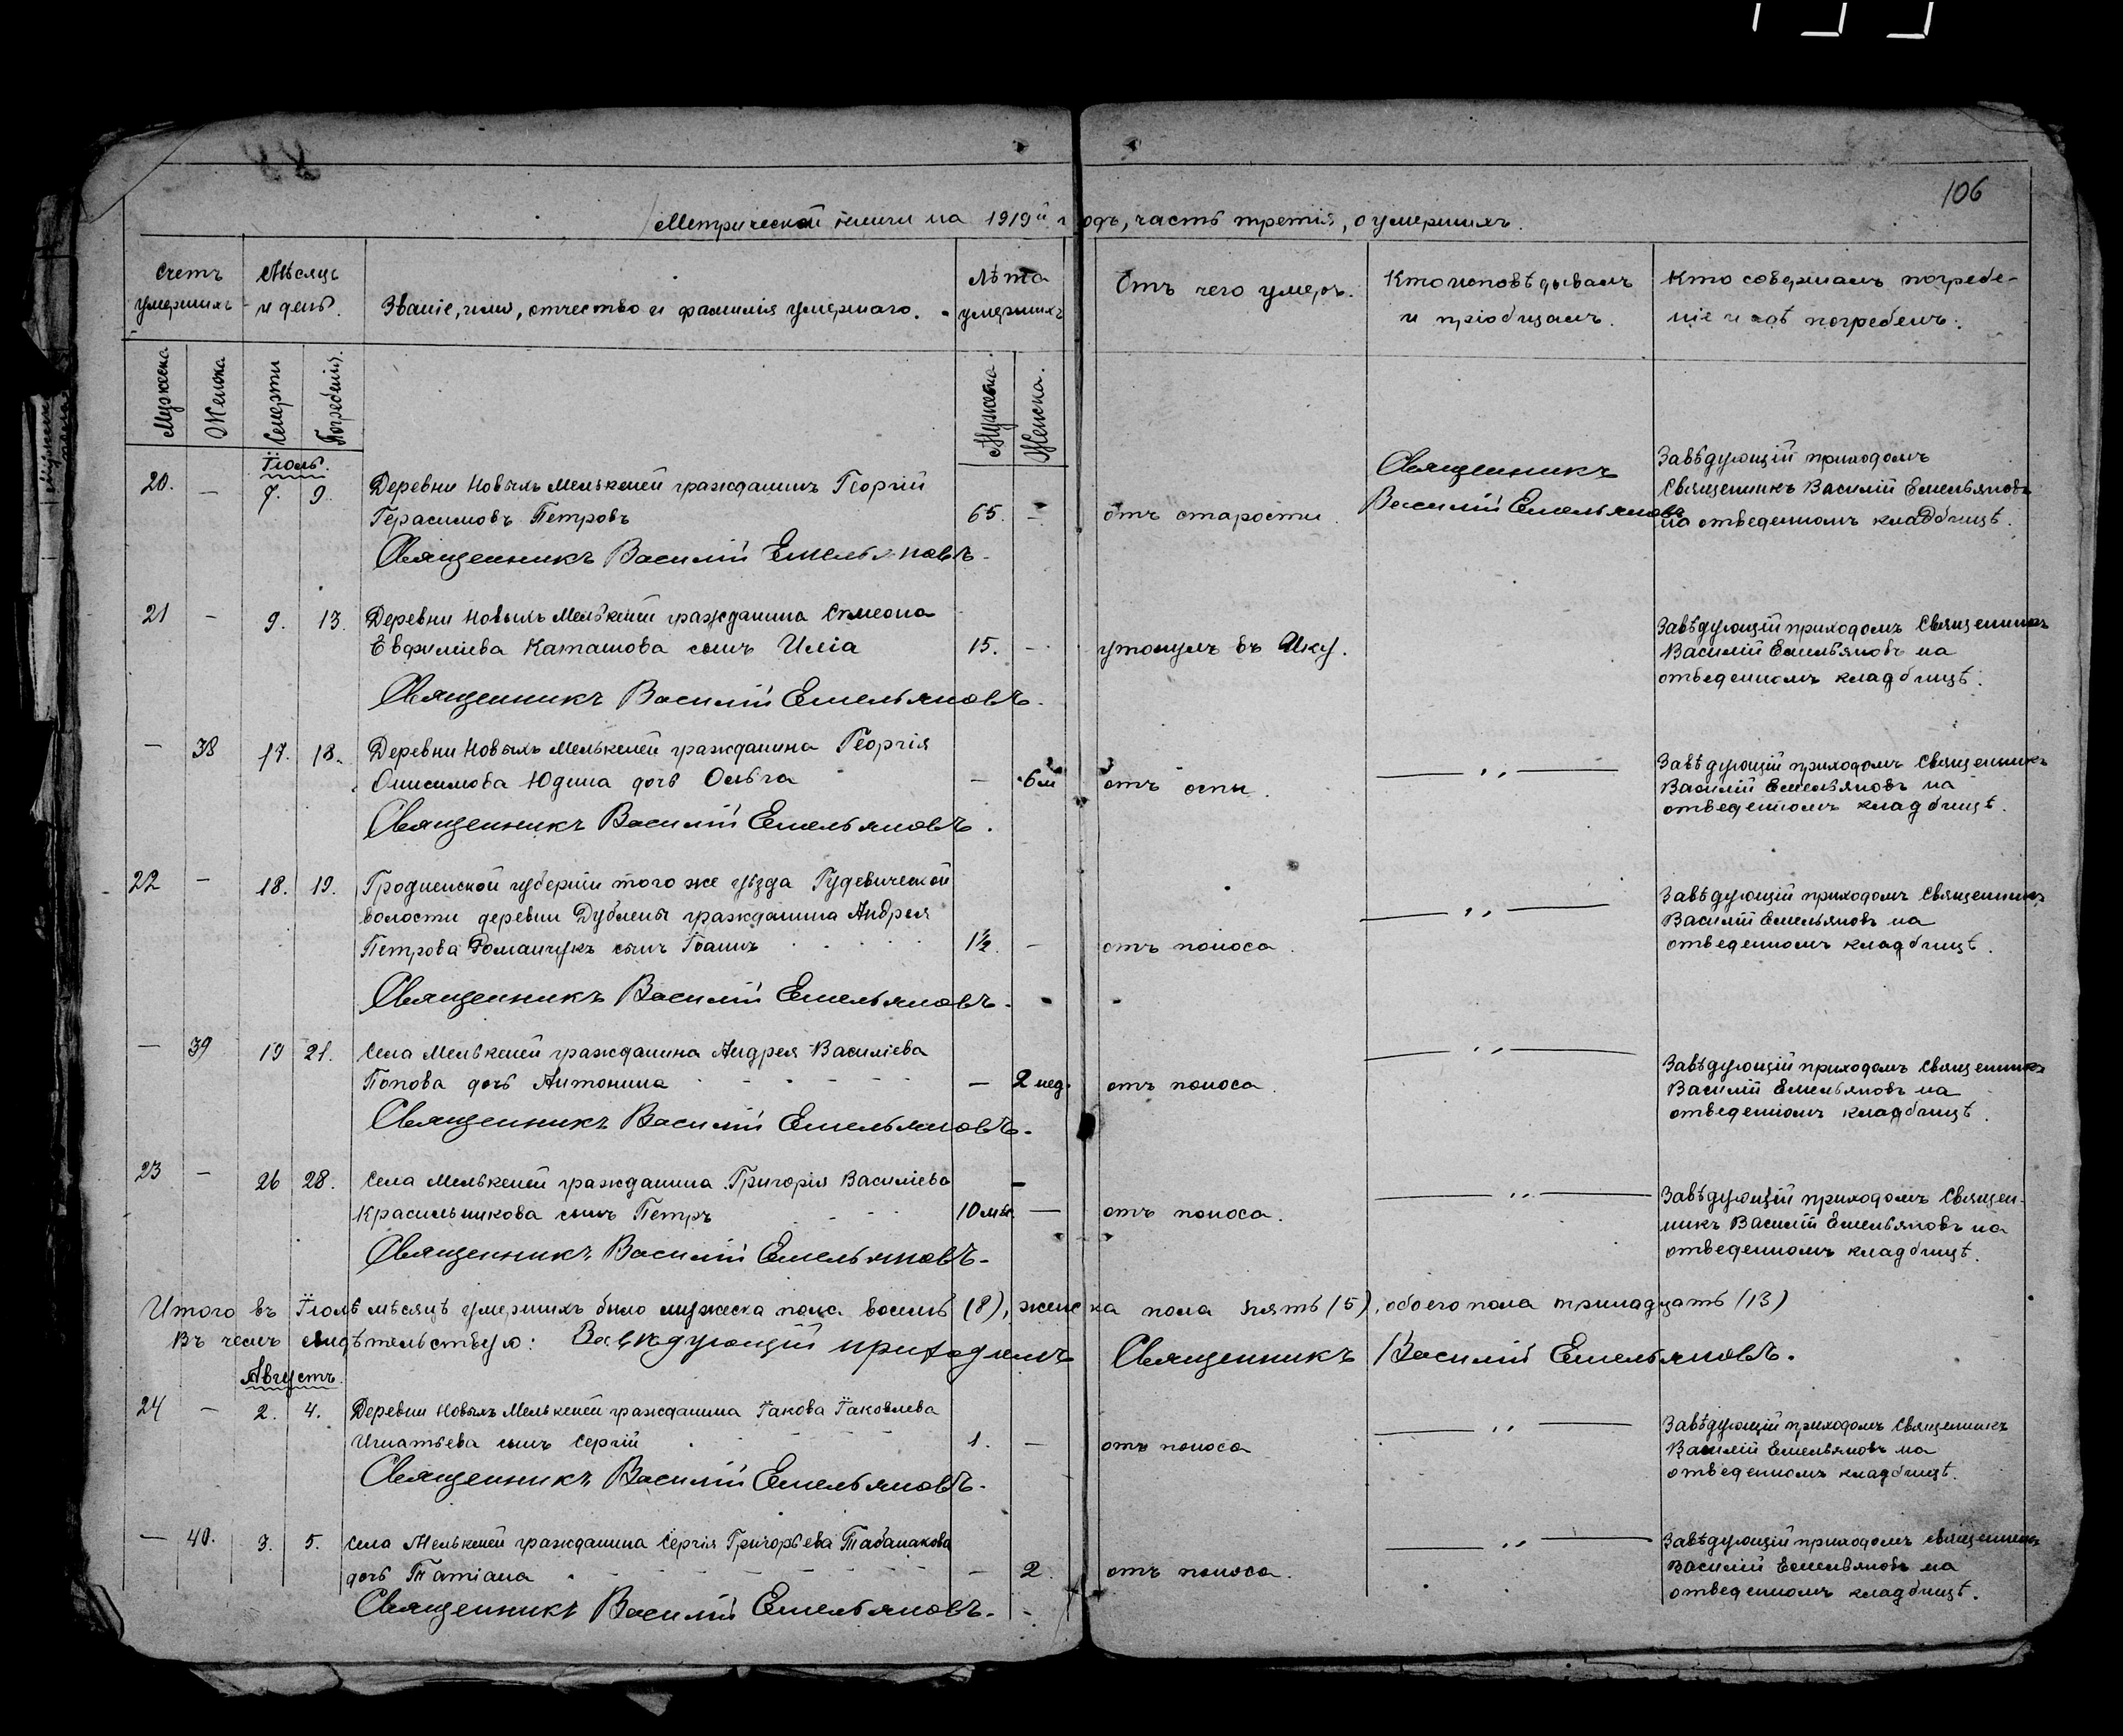 106
Метрической книги на 1919й годъ, часть третія, о умершихъ.
Счетъ умершихъ
Мѣсяцъ и день.
Званіе, имя, отчество и фамилія умершаго.
Лѣта умершихъ
Отъ чего умеръ.
Кто исповѣдывалъ и пріобщалъ.
Кто совершалъ погребеніе и гдѣ погребенъ.
Мужеска
Женска
Смерти
Погребенія.
Мужеска.
Женска.
Іюль.
20. — 7. 9. Деревни Новыхъ Мелькеней гражданинъ Георгій
Герасимовъ Петровъ 65. — отъ старости.
Священникъ Василій Емельяновъ.
Священникъ
Василій Емельяновъ
Завѣдующій приходомъ
Священникъ Василій Емельяновъ
на отведенномъ кладбищѣ.
21 — 9. 13. Деревни Новыхъ Мелькеней гражданина Симеона
Евфиміева Каташова сынъ Илія 15. — утонулъ въ Ику.
Священникъ Василій Емельяновъ.
Завѣдующій приходомъ Священникъ
Василій Емельяновъ на
отведенномъ кладбищѣ.
— 38 17. 18. Деревни Новыхъ Мелькеней гражданина Георгія
Онисимова Юдина дочь Ольга — 6м отъ оспы. — „ —
Священникъ Василій Емельяновъ.
Завѣдующій приходомъ Священникъ
Василій Емельяновъ на
отведенномъ кладбищѣ.
22 — 18. 19. Гродненской губерніи того же уѣзда Гудевической
волости деревни Дублены гражданина Андрея
Петрова Романчукъ сынъ Іоаннъ 1½. — отъ поноса. — „ —
Священникъ Василій Емельяновъ.
Завѣдующій приходомъ Священникъ
Василій Емельяновъ на
отведенномъ кладбищѣ.
— 39 19 21. Села Мелькеней гражданина Андрея Василіева
Попова дочь Антонина — 2 нед. отъ поноса. — „ —
Священникъ Василій Емельяновъ.
Завѣдующій приходомъ Священникъ
Василій Емельяновъ на
отведенномъ кладбищѣ.
23 — 26 28. Села Мелькеней гражданина Григорія Василіева
Красильникова сынъ Петръ 10 мѣс. — отъ поноса. — „ —
Священникъ Василій Емельяновъ.
Завѣдующій приходомъ Священ-
никъ Василій Емельяновъ на
отведенномъ кладбищѣ.
Итого въ Іюлѣ мѣсяцѣ умершихъ было мужеска пола восемь (8), женска пола пять (5), обоего пола тринадцать (13)
Въ чемъ свидѣтельствую: Завѣдующій приходомъ Священникъ Василій Емельяновъ.
Августъ.
24 — 2. 4. Деревни Новыхъ Мелькеней гражданина Іакова Іаковлева
Игнатьева сынъ Сергій 1. — отъ поноса — „ —
Священникъ Василій Емельяновъ.
Завѣдующій приходомъ Священникъ
Василій Емельяновъ на
отведенномъ кладбищѣ.
— 40. 3. 5. Села Мелькеней гражданина Сергія Григорьева Табанакова
дочь Татіана — 2. отъ поноса. — „ —
Священникъ Василій Емельяновъ.
Завѣдующій приходомъ священникъ
Василій Емельяновъ на
отведенномъ кладбищѣ.